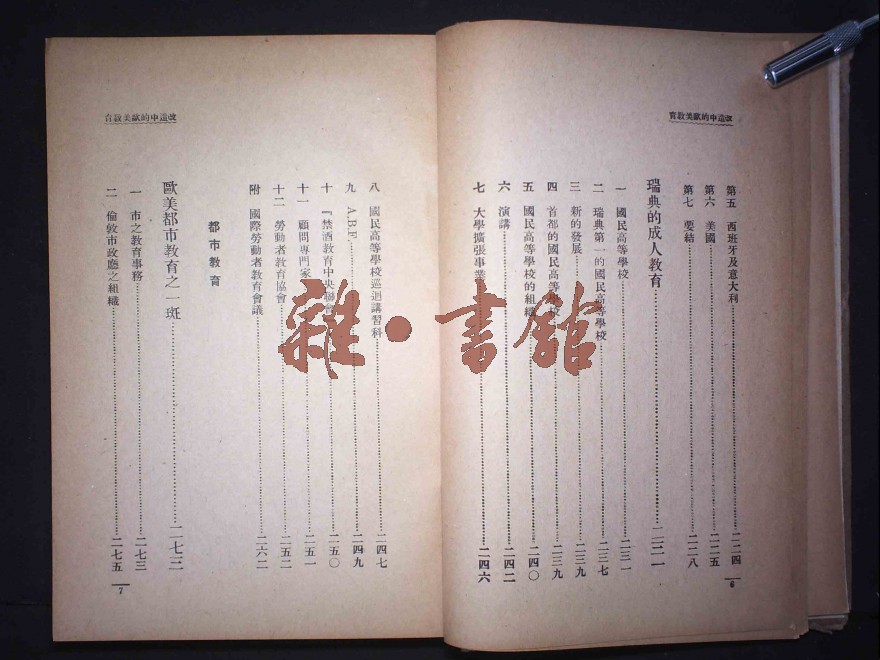 改造中的歐美教育
第五 西班牙及意大利……二二四
第六 美國……二二五
第七 要結……二二八
瑞典的成人教育……二三一
一 國民高等學校……二三一
二 瑞典第一的國民高等學校……二三七
三 新的發展……二三九
四 首都的國民高等學校……二三九
五 國民高等學校的組織……二四〇
六 演講……二四二
七 大學擴張事業……二四六
6
改造中的歐美教育
八 國民高等學校巡迴講習科……二四七
九 A.B.F.……二四九
十 『禁酒教育中央聯會……二五〇
十一 顧問專門家……二五一
十二 勞動者教育協會……二五二
附 國際勞動者教育會議……二六二
都市教育
歐美都市教育之一斑……二七三
一 市之教育事務……二七三
二 倫敦市政廳之組織……二七五
7
雜·書館